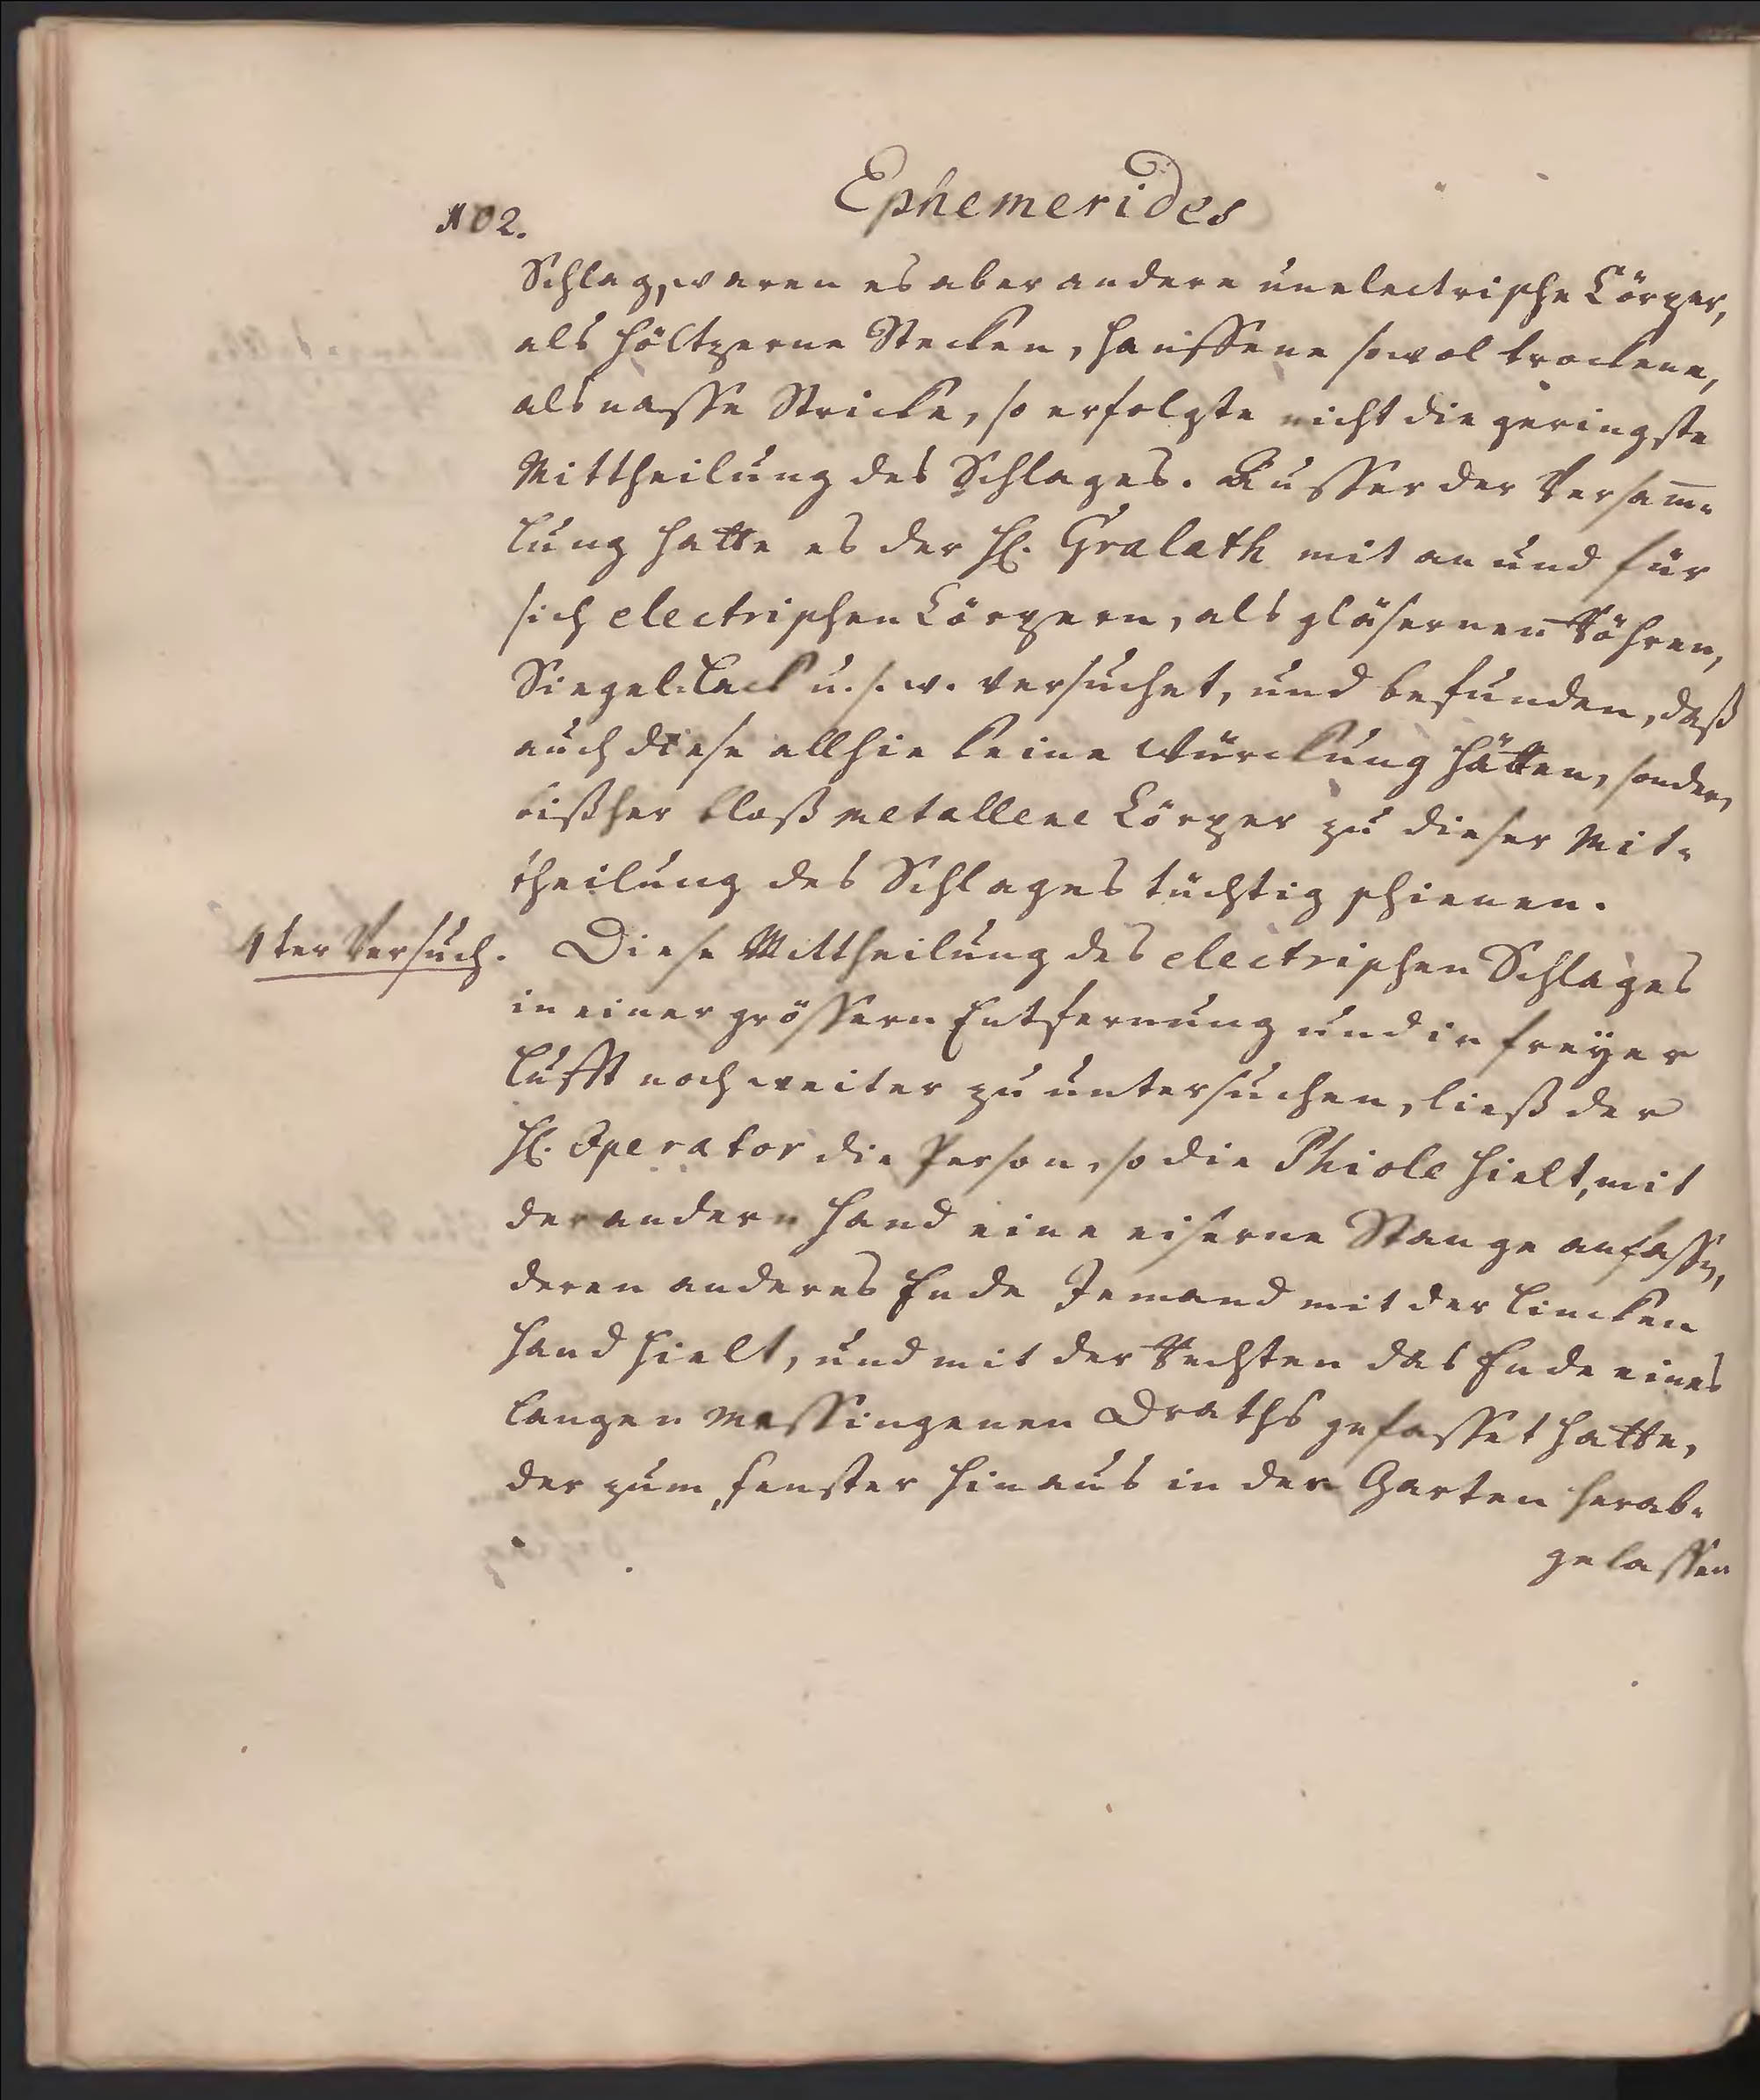 Ephemerides
102.
Schlag, waren es aber andere unelectrische Cörper,
als höltzerne Stecken, hanffene sowol trockene,
als nasse Stricke, so erfolgte nicht die geringste
Mittheilung des Schlages. Ausser der Versam̅-
lung hatte es der H. Gralath mit an und für
sich electrischen Cörpern, als gläsernen Röhren,
Siegel-Lack u. s. w. versuchet, und befunden, daß
auch diese allhie keine Würckung hätten, sondern
bißher bloß metallene Cörper zu dieser Mit-
theilung des Schlages tüchtig schienen.
1ter Versuch. Diese Mittheilung des electrischen Schlages
in einer grössern Entfernung und in freÿer
Lufft noch weiter zu untersuchen, ließ der
H. Operator die Person, so die Phiole hielt, mit
der andern Hand eine eiserne Stange anfassen,
deren anderes Ende Jemand mit der lincken
Hand hielt, und mit der Rechten das Ende eines
langen messingenen Draths gefasset hatte,
der zum Fenster hinaus in den Garten herab-
gelassen